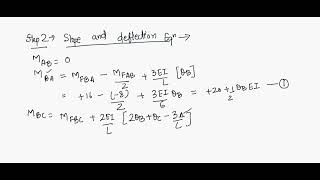 Step 2 → Slope and deflection Eqⁿ →
M_AB = 0
M_BA = M_FBA - M_FAB/2 + 3EI/L [θ_B]
= +16 - (-8)/2 + 3EI/6 θ_B = +20 + 1/2 θ_B EI — ①
M_BC = M_FBC + 2EI/L [2θ_B + θ_C - 3Δ/L]